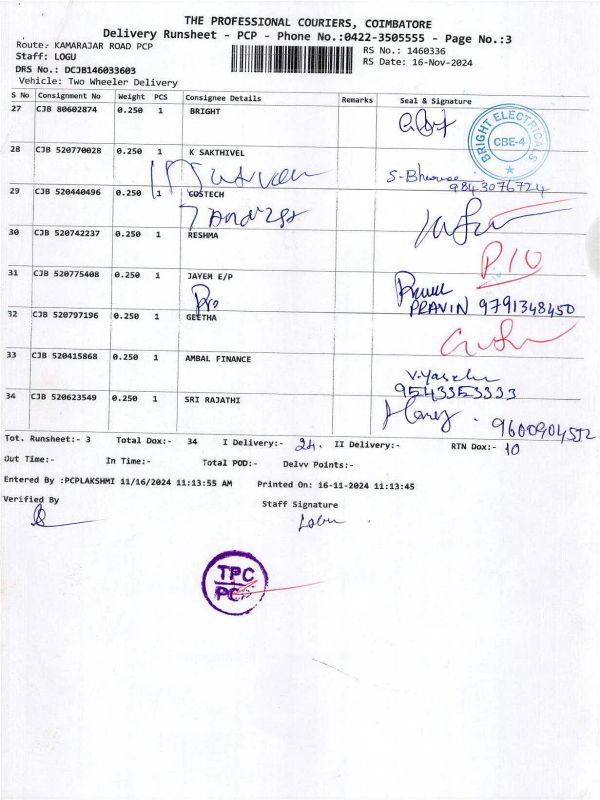 THE PROFESSIONAL COURIERS, COIMBATORE
Delivery Runsheet - PCP - Phone No.:0422-3505555 - Page No.:3
Route: KAMARAJAR ROAD PCP
RS No.: 1460336
Staff: LOGU
RS Date: 16-Nov-2024
DRS No.: DCJB146033603
Vehicle: Two Wheeler Delivery
S No Consignment No Weight PCS Consignee Details Remarks Seal & Signature
27 CJB 80602874 0.250 1 BRIGHT
BRIGHT ELECTRICALS
CBE-4
28 CJB 520770028 0.250 1 K SAKTHIVEL
9843076724
29 CJB 520440496 0.250 1 COSTECH
30 CJB 520742237 0.250 1 RESHMA
P/O
31 CJB 520775408 0.250 1 JAYEM E/P
PRAVIN 9791348450
32 CJB 520797196 0.250 1 GEETHA
33 CJB 520415868 0.250 1 AMBAL FINANCE
9543353333
34 CJB 520623549 0.250 1 SRI RAJATHI
Tot. Runsheet:- 3 Total Dox:- 34 I Delivery:- 24. II Delivery:- RTN Dox:- 10
Out Time:- In Time:- Total POD:- Delvv Points:-
Entered By :PCPLAKSHMI 11/16/2024 11:13:55 AM Printed On: 16-11-2024 11:13:45
Verified By
Staff Signature
TPC